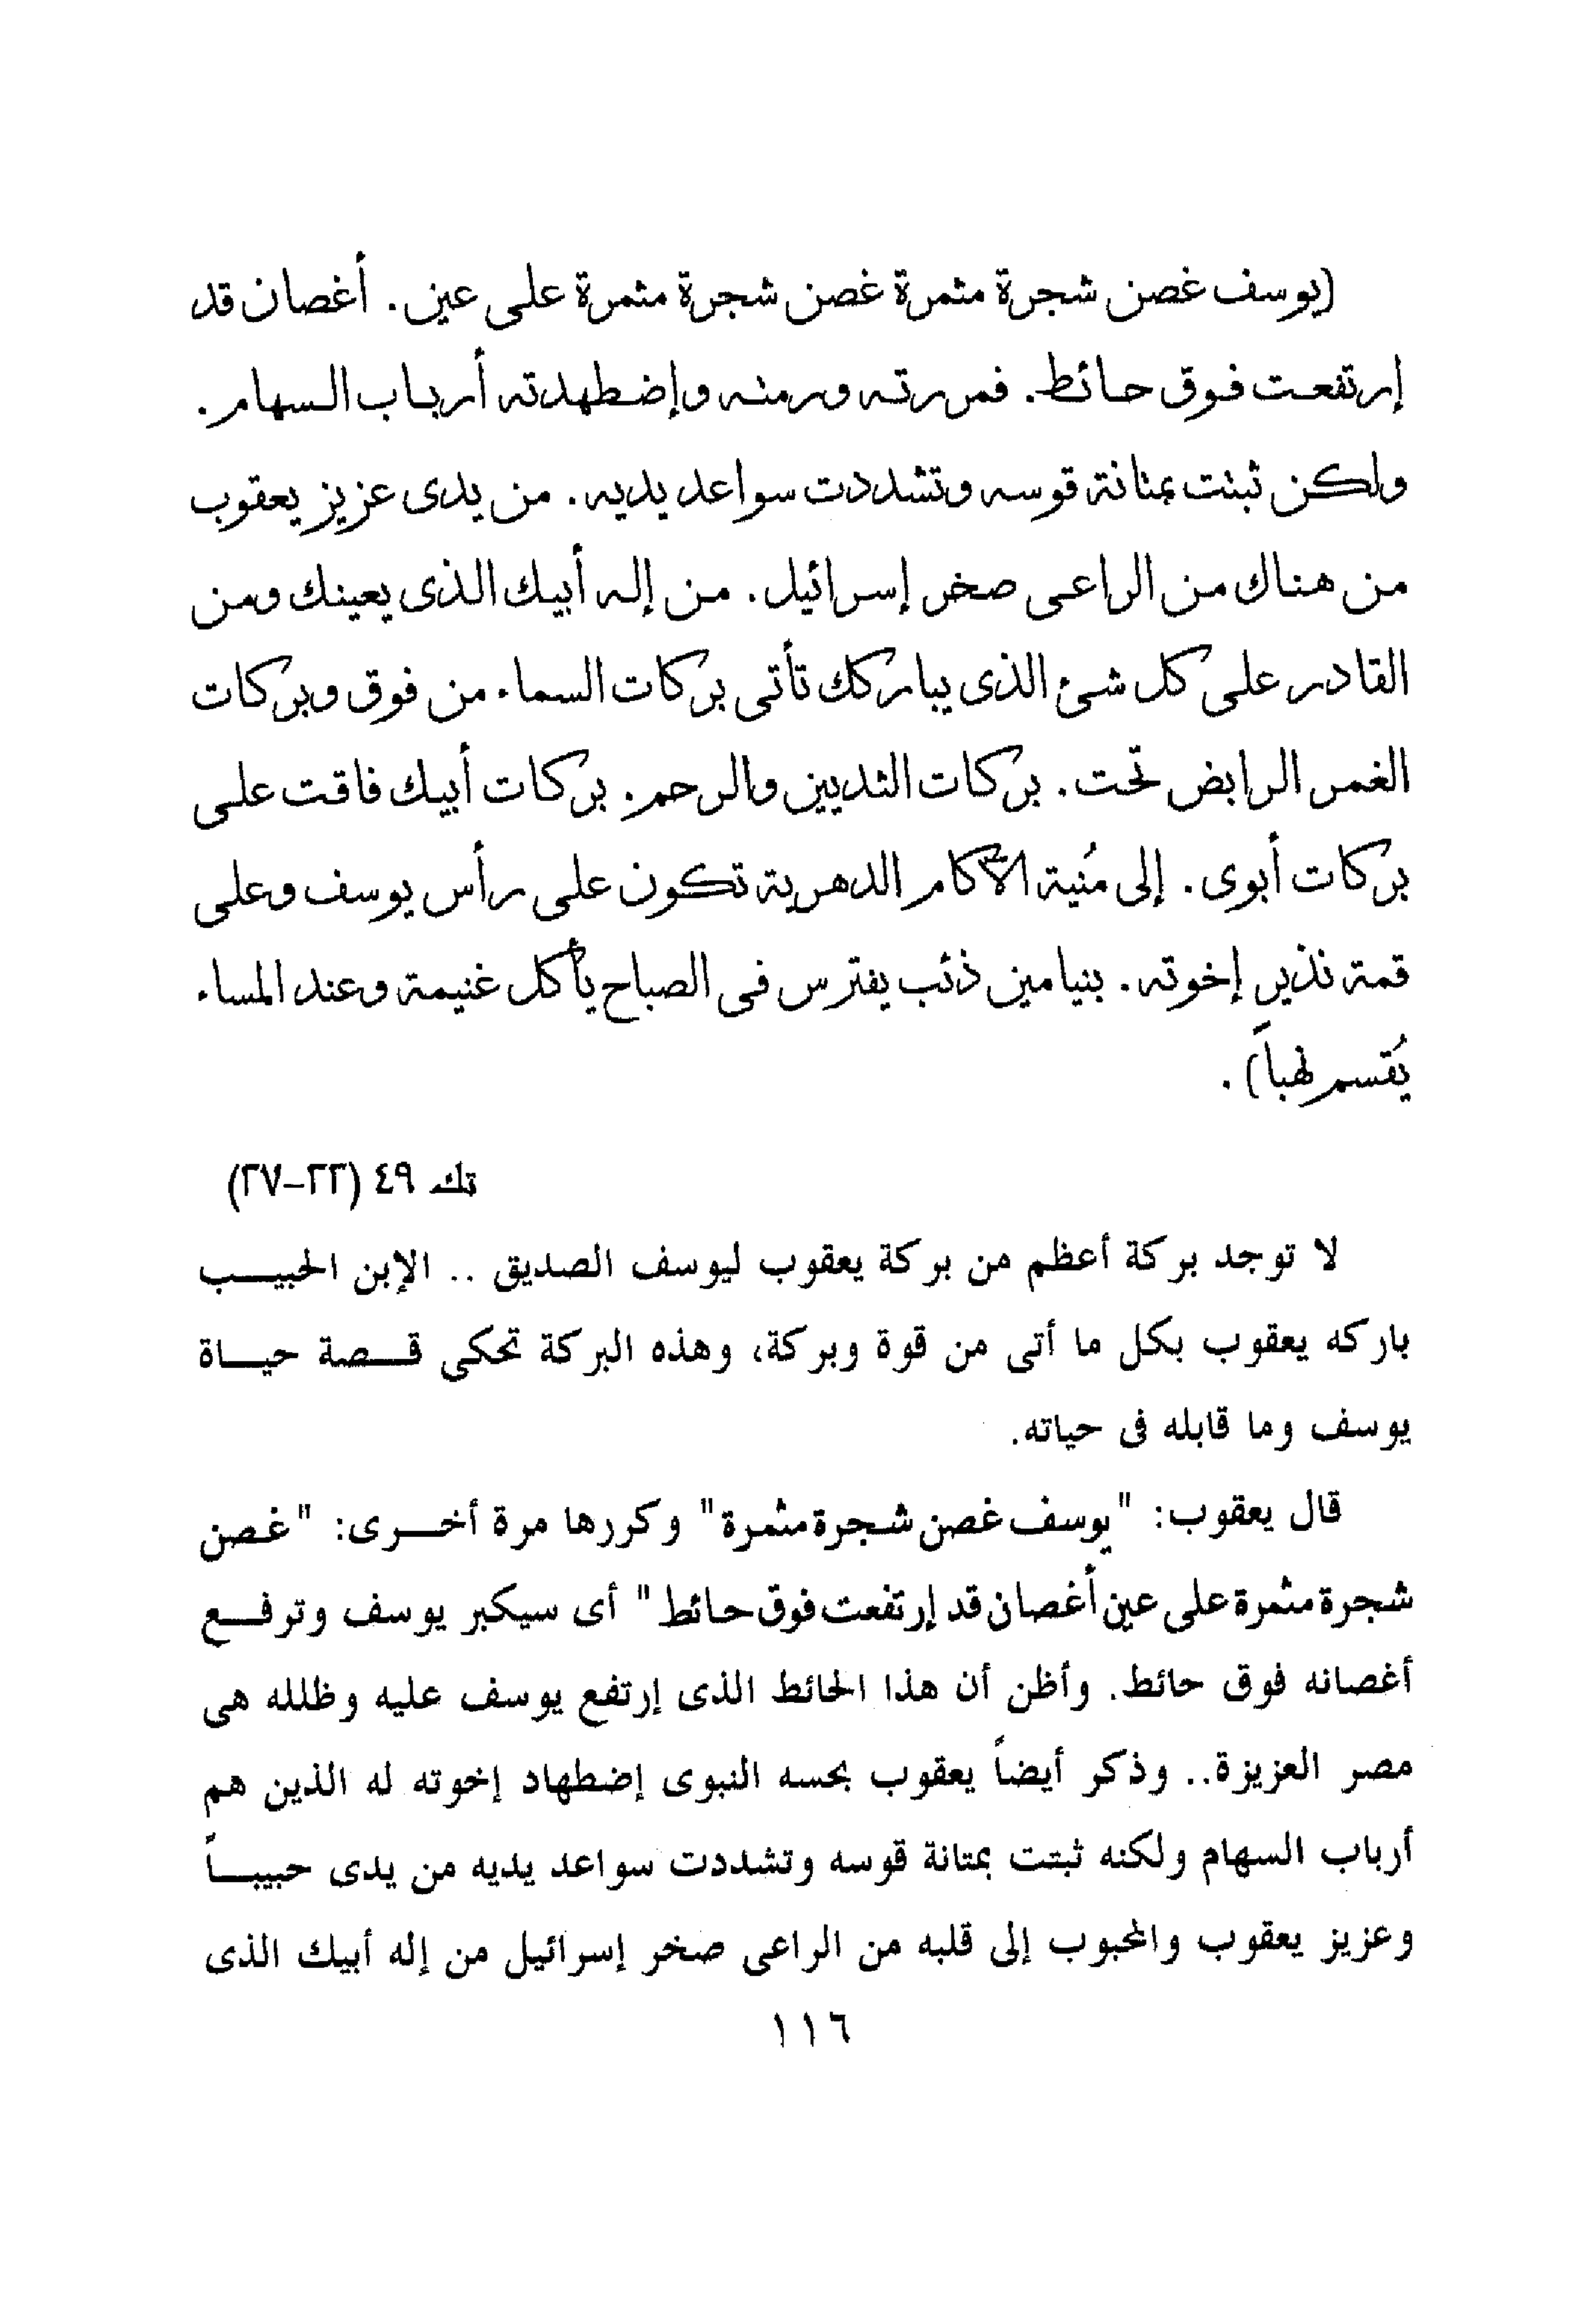 (يوسف غصن شجرة مثمرة غصن شجرة مثمرة على عين. أغصان قد
إرتفعت فوق حائط. فمررته ورمته وإضطهدته أرباب السهام.
ولكن ثبتت بمتانة قوسه وتشددت سواعد يديه. من يدى عزيز يعقوب
من هناك من الراعى صخر إسرائيل. من إله أبيك الذى يعينك ومن
القادر على كل شئ الذى يباركك تأتى بركات السماء من فوق وبركات
الغمر الرابض تحت. بركات الثديين والرحم. بركات أبيك فاقت على
بركات أبوى. إلى مُنية الآكام الدهرية تكون على رأس يوسف وعلى
قمة نذير إخوته. بنيامين ذئب يفترس فى الصباح يأكل غنيمة وعند المساء
يُقسم نهباً).
تك ٤٩ (٢٢-٢٧)
لا توجد بركة أعظم من بركة يعقوب ليوسف الصديق .. الإبن الحبيب
باركه يعقوب بكل ما أتى من قوة وبركة، وهذه البركة تحكى قصة حياة
يوسف وما قابله فى حياته.
قال يعقوب: "يوسف غصن شجرة مثمرة" وكررها مرة أخرى: "غصن
شجرة مثمرة على عين أغصان قد إرتفعت فوق حائط" أى سيكبر يوسف وترفع
أغصانه فوق حائط. وأظن أن هذا الحائط الذى إرتفع يوسف عليه وظلله هى
مصر العزيزة.. وذكر أيضاً يعقوب بحسه النبوى إضطهاد إخوته له الذين هم
أرباب السهام ولكنه ثبتت بمتانة قوسه وتشددت سواعد يديه من يدى حبيباً
وعزيز يعقوب والمحبوب إلى قلبه من الراعى صخر إسرائيل من إله أبيك الذى
١١٦